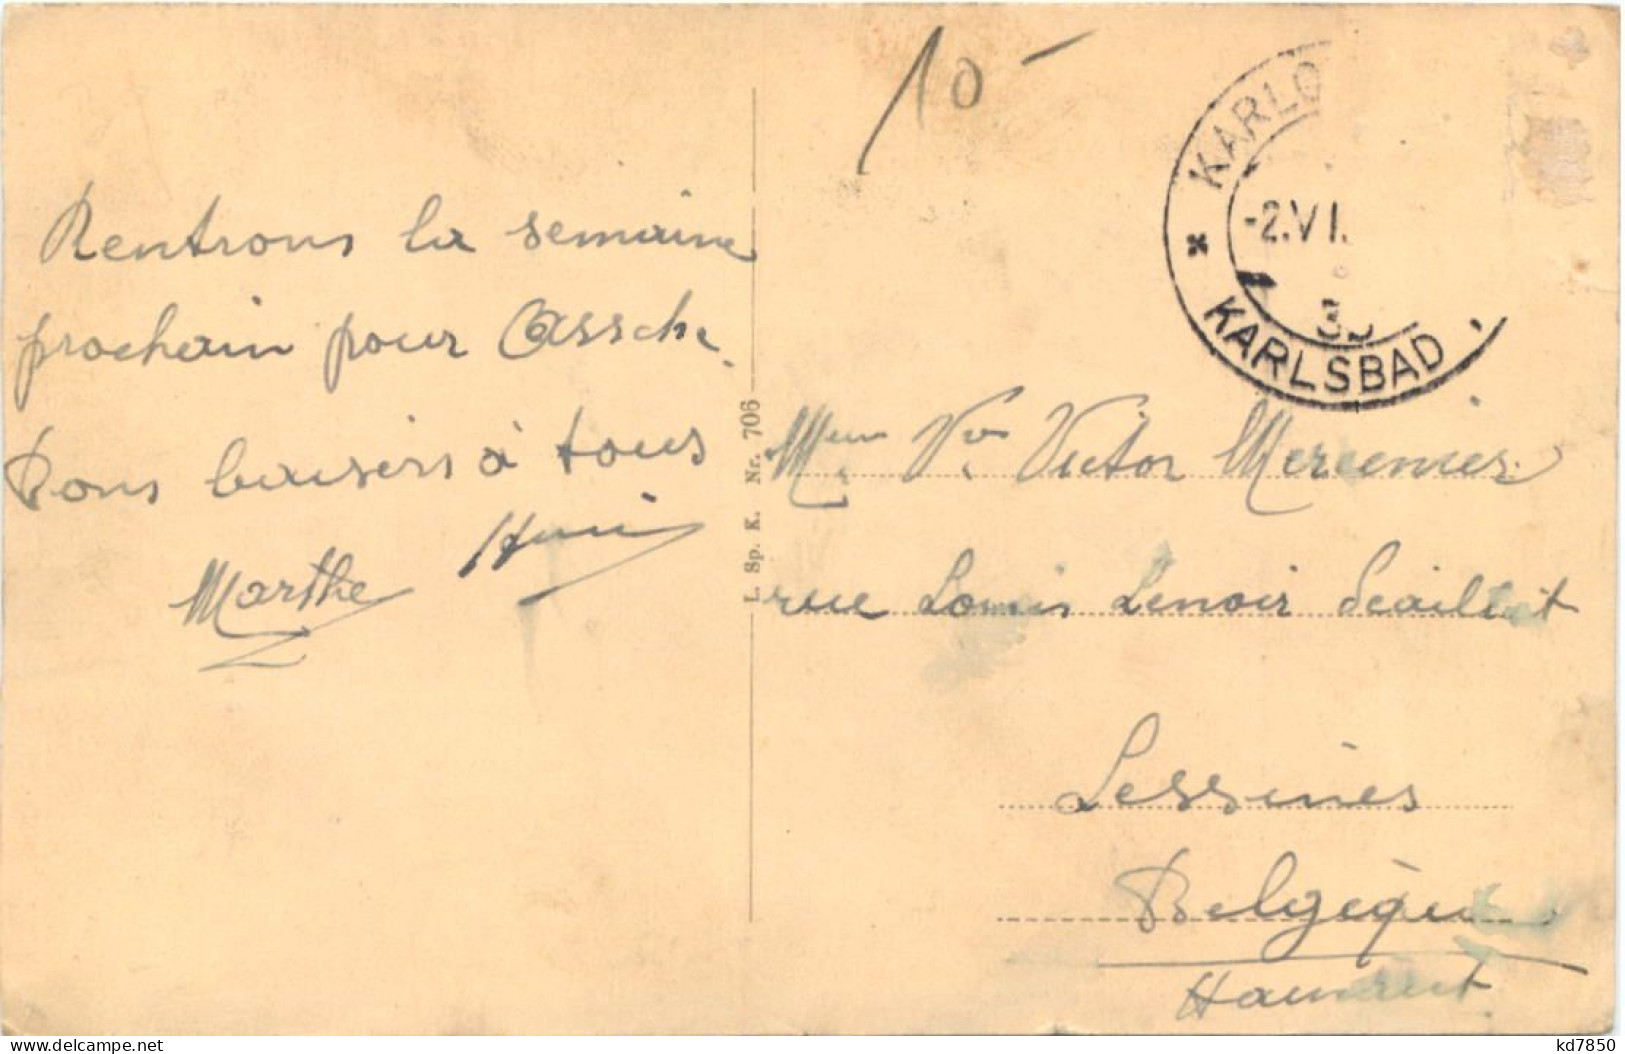 10-
KARLO
-2.VI.
KARLSBAD
Rentrons la semaine
prochain pour Assche.
Bons baisers à tous
Marthe
L. Sp. K. Nr. 706
Mme Vve Victor Mercenier
rue Louis Lenoir Scaillet
Lessines
Belgique
Hainaut
kd7850